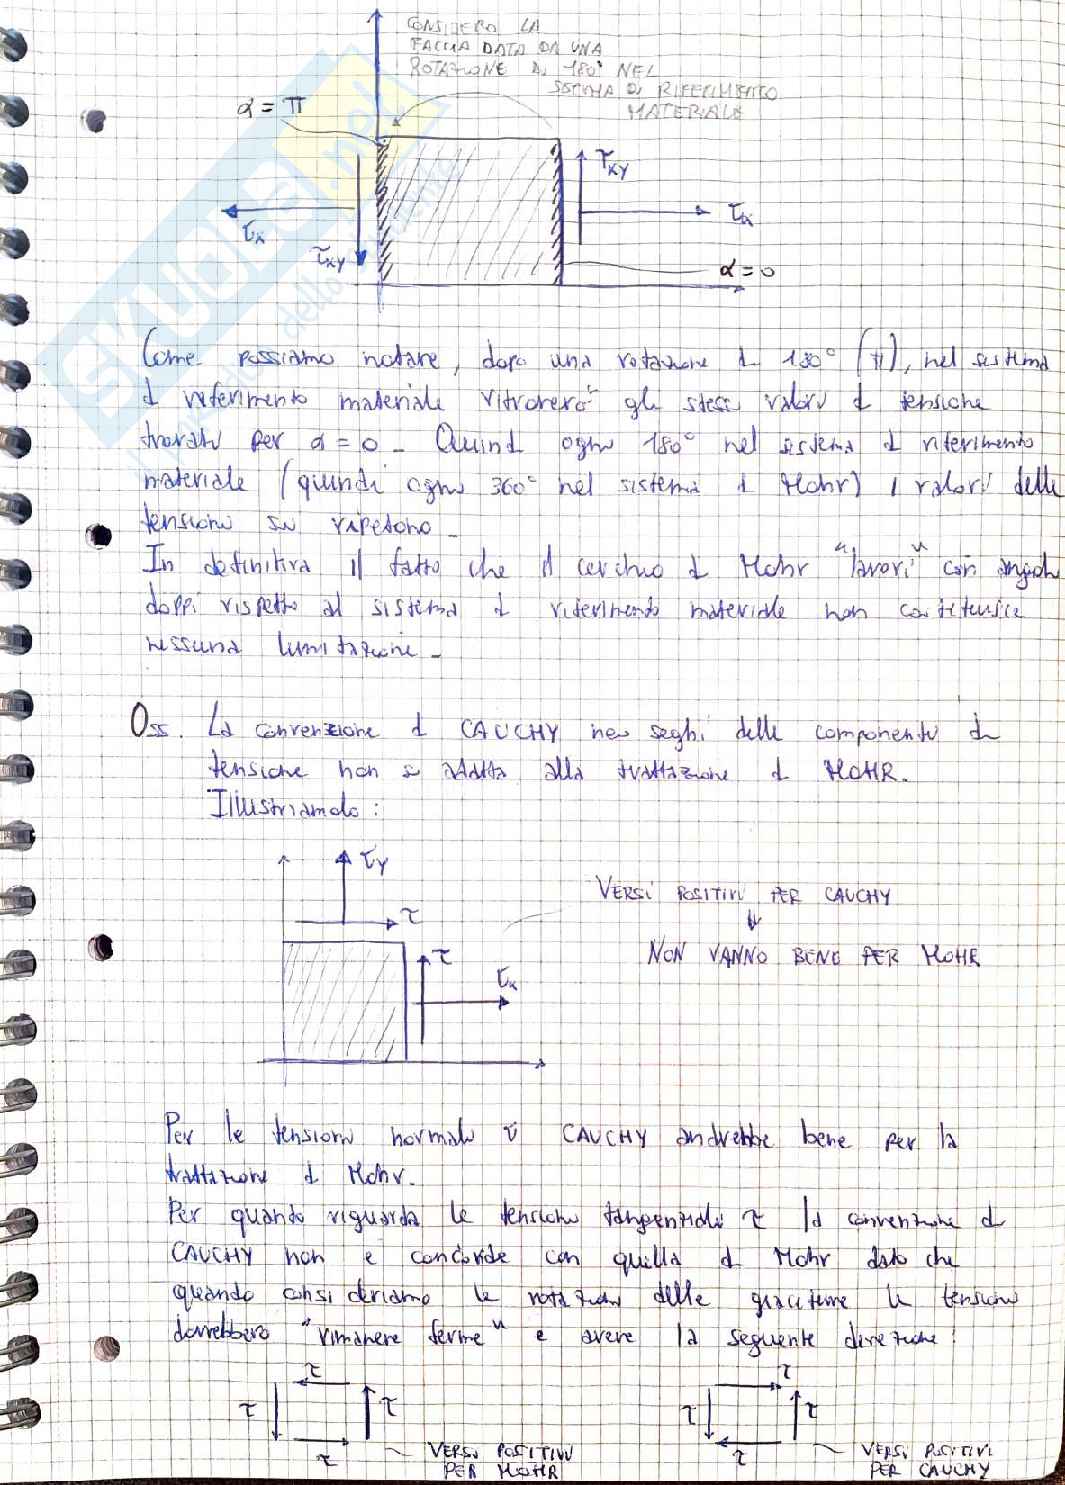 CONSIDERO LA
FACCIA DATA DA UNA
ROTAZIONE DI 180° NEL
SISTEMA DI RIFERIMENTO
MATERIALE
α = π
τxy
σx
σx
τxy
α = 0
Come possiamo notare, dopo una rotazione di 180° (π), nel sistema
di riferimento materiale ritroverò gli stessi valori di tensione
trovati per α = 0. Quindi ogni 180° nel sistema di riferimento
materiale (quindi ogni 360° nel sistema di Mohr) i valori delle
tensioni si ripetono.
In definitiva il fatto che il cerchio di Mohr "lavori" con angoli
doppi rispetto al sistema di riferimento materiale non costituisce
nessuna limitazione.
Oss. La convenzione di CAUCHY nei segni delle componenti di
tensione non si adatta alla trattazione di MOHR.
Illustriamolo:
σy
τ
VERSI POSITIVI PER CAUCHY
τ
NON VANNO BENE PER MOHR
σx
Per le tensioni normali σ CAUCHY andrebbe bene per la
trattazione di Mohr.
Per quando riguarda le tensioni tangenziali τ la convenzione di
CAUCHY non è concorde con quella di Mohr dato che
quando consideriamo le rotazioni delle giaciture le tensioni
dovrebbero "rimanere ferme" e avere la seguente direzione:
τ
τ
τ
τ
τ
τ
τ
τ
VERSI POSITIVI
PER MOHR
VERSI POSITIVI
PER CAUCHY
SKUOLA.net